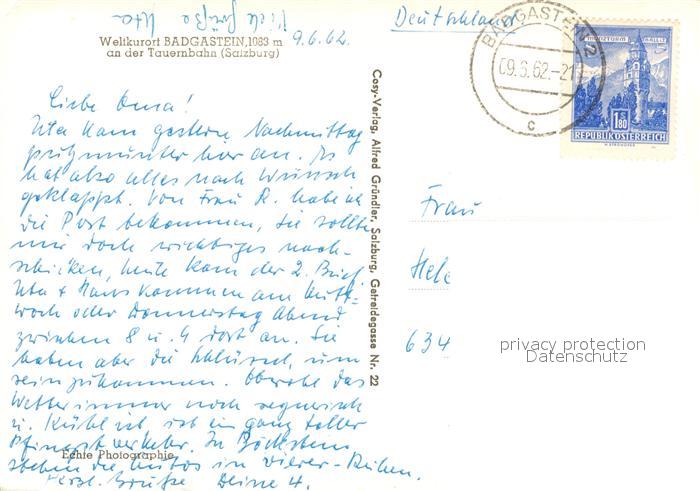 Viele Grüße Uta
9.6.62.
Deutschland.
Weltkurort BADGASTEIN, 1083 m
an der Tauernbahn (Salzburg)
BADGASTEIN 2
09.6.62.-21
c
MÜNZTURM HALL I.T.
S 1.80
REPUBLIK ÖSTERREICH
Liebe Oma!
Uta kam gestern Nachmittag
putzmunter hier an. Es
hat also alles nach Wunsch
geklappt. Von Frau R. habe ich
die Post bekommen, sie sollte
mir doch wichtiges nach-
schicken, heute kam der 2. Brief.
Uta + Hans kommen am Mitt-
woch oder Donnerstag Abend
zwischen 8 u. 9 dort an. Sie
haben aber die Schlüssel, um
reinzukommen. Obwohl das
Wetter immer noch regnerisch
u. kühl ist, ist ein ganz toller
Pfingstverkehr. In Böckstein
stehen die Autos in vierer-Reihen.
Herzl. Grüße Deine H.
Echte Photographie
Cosy-Verlag, Alfred Gründler, Salzburg, Getreidegasse Nr. 22
Frau
Hele
634
privacy protection
Datenschutz